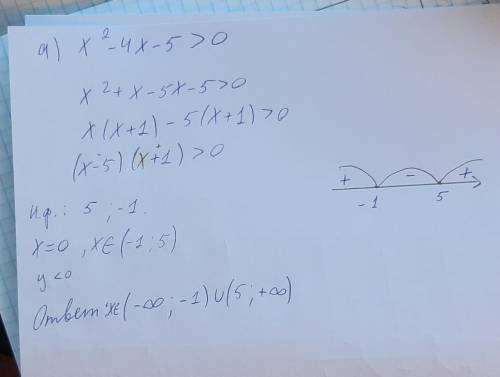 а) x² - 4x - 5 > 0
x² + x - 5x - 5 > 0
x (x+1) - 5 (x+1) > 0
(x-5) (x+1) > 0
- +
+ - +
-1 5
н.ф.: 5 ; -1.
x=0 , x∈(-1; 5)
y<0
Ответ: x∈(-∞; -1)∪(5; +∞)